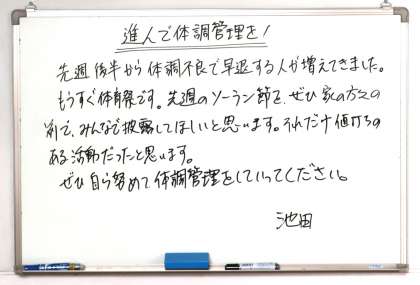 進んで体調管理を!
先週後半から体調不良で早退する人が増えてきました。
もうすぐ体育祭です。先週のソーラン節を、ぜひ家の方々の
前で、みんなで披露してほしいと思います。それだけ値打ちの
ある活動だったと思います。
ぜひ自ら努めて体調管理をしていってください。
池田